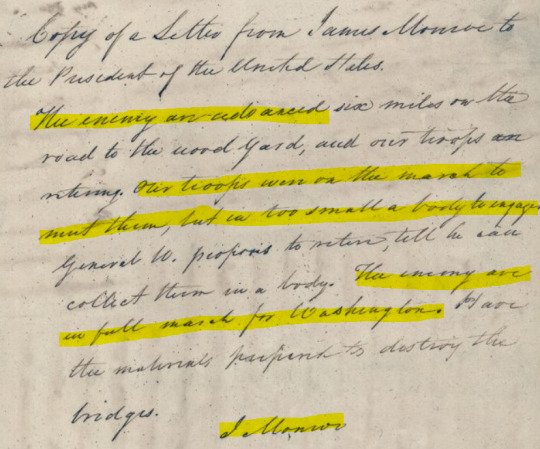 Copy of a Letter from James Monroe to
the President of the United States.
The enemy are advanced six miles on the
road to the wood Yard, and our troops are
retiring. Our troops were on the march to
meet them, but in too small a body to engage.
General W. proposes to retire, till he can
collect them in a body. The enemy are
in full march for Washington. Have
the materials prepared to destroy the
bridges.
J Monroe